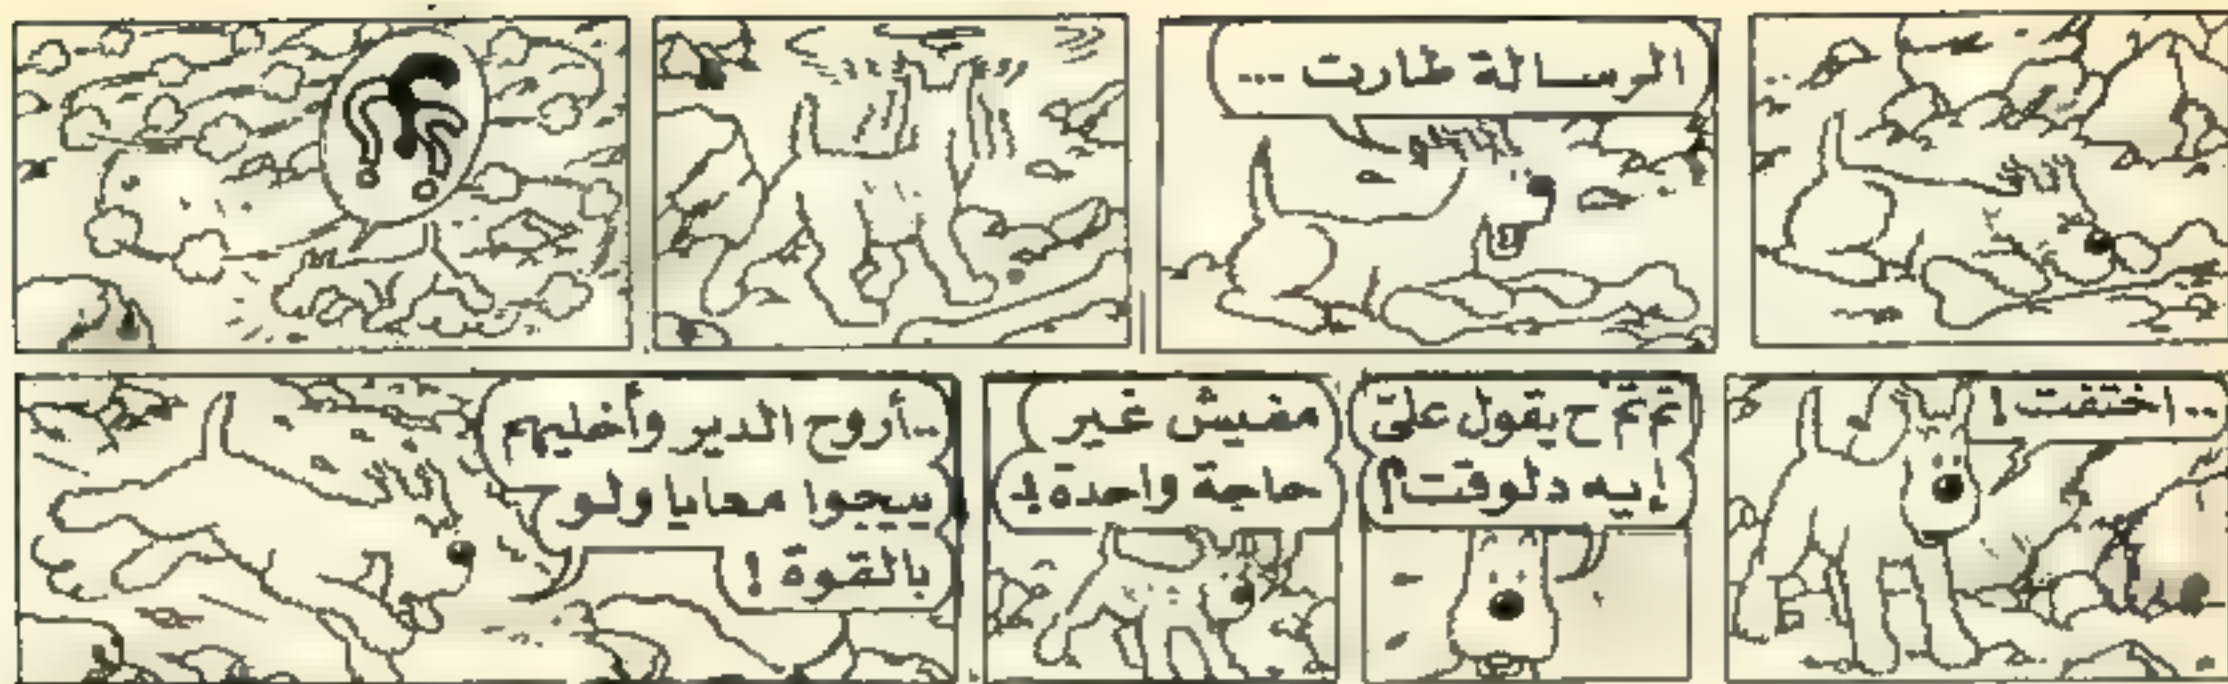 الرسالة طارت ...
.. اختفت !
تم تم ح يقول على
إيه دلوقت ؟!
مفيش غير
حاجة واحدة !..
.. أروح الدير وأخليهم
ييجوا معايا ولو
بالقوة !